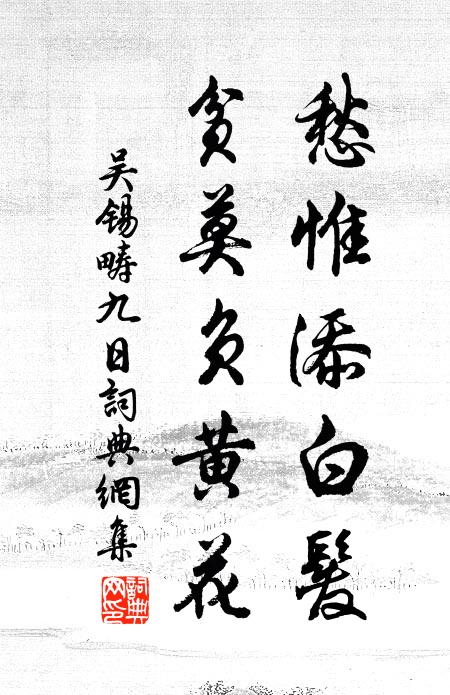 愁惟添白髮
貧莫負黄花
吴錫疇九日詞典網集
詞典网印